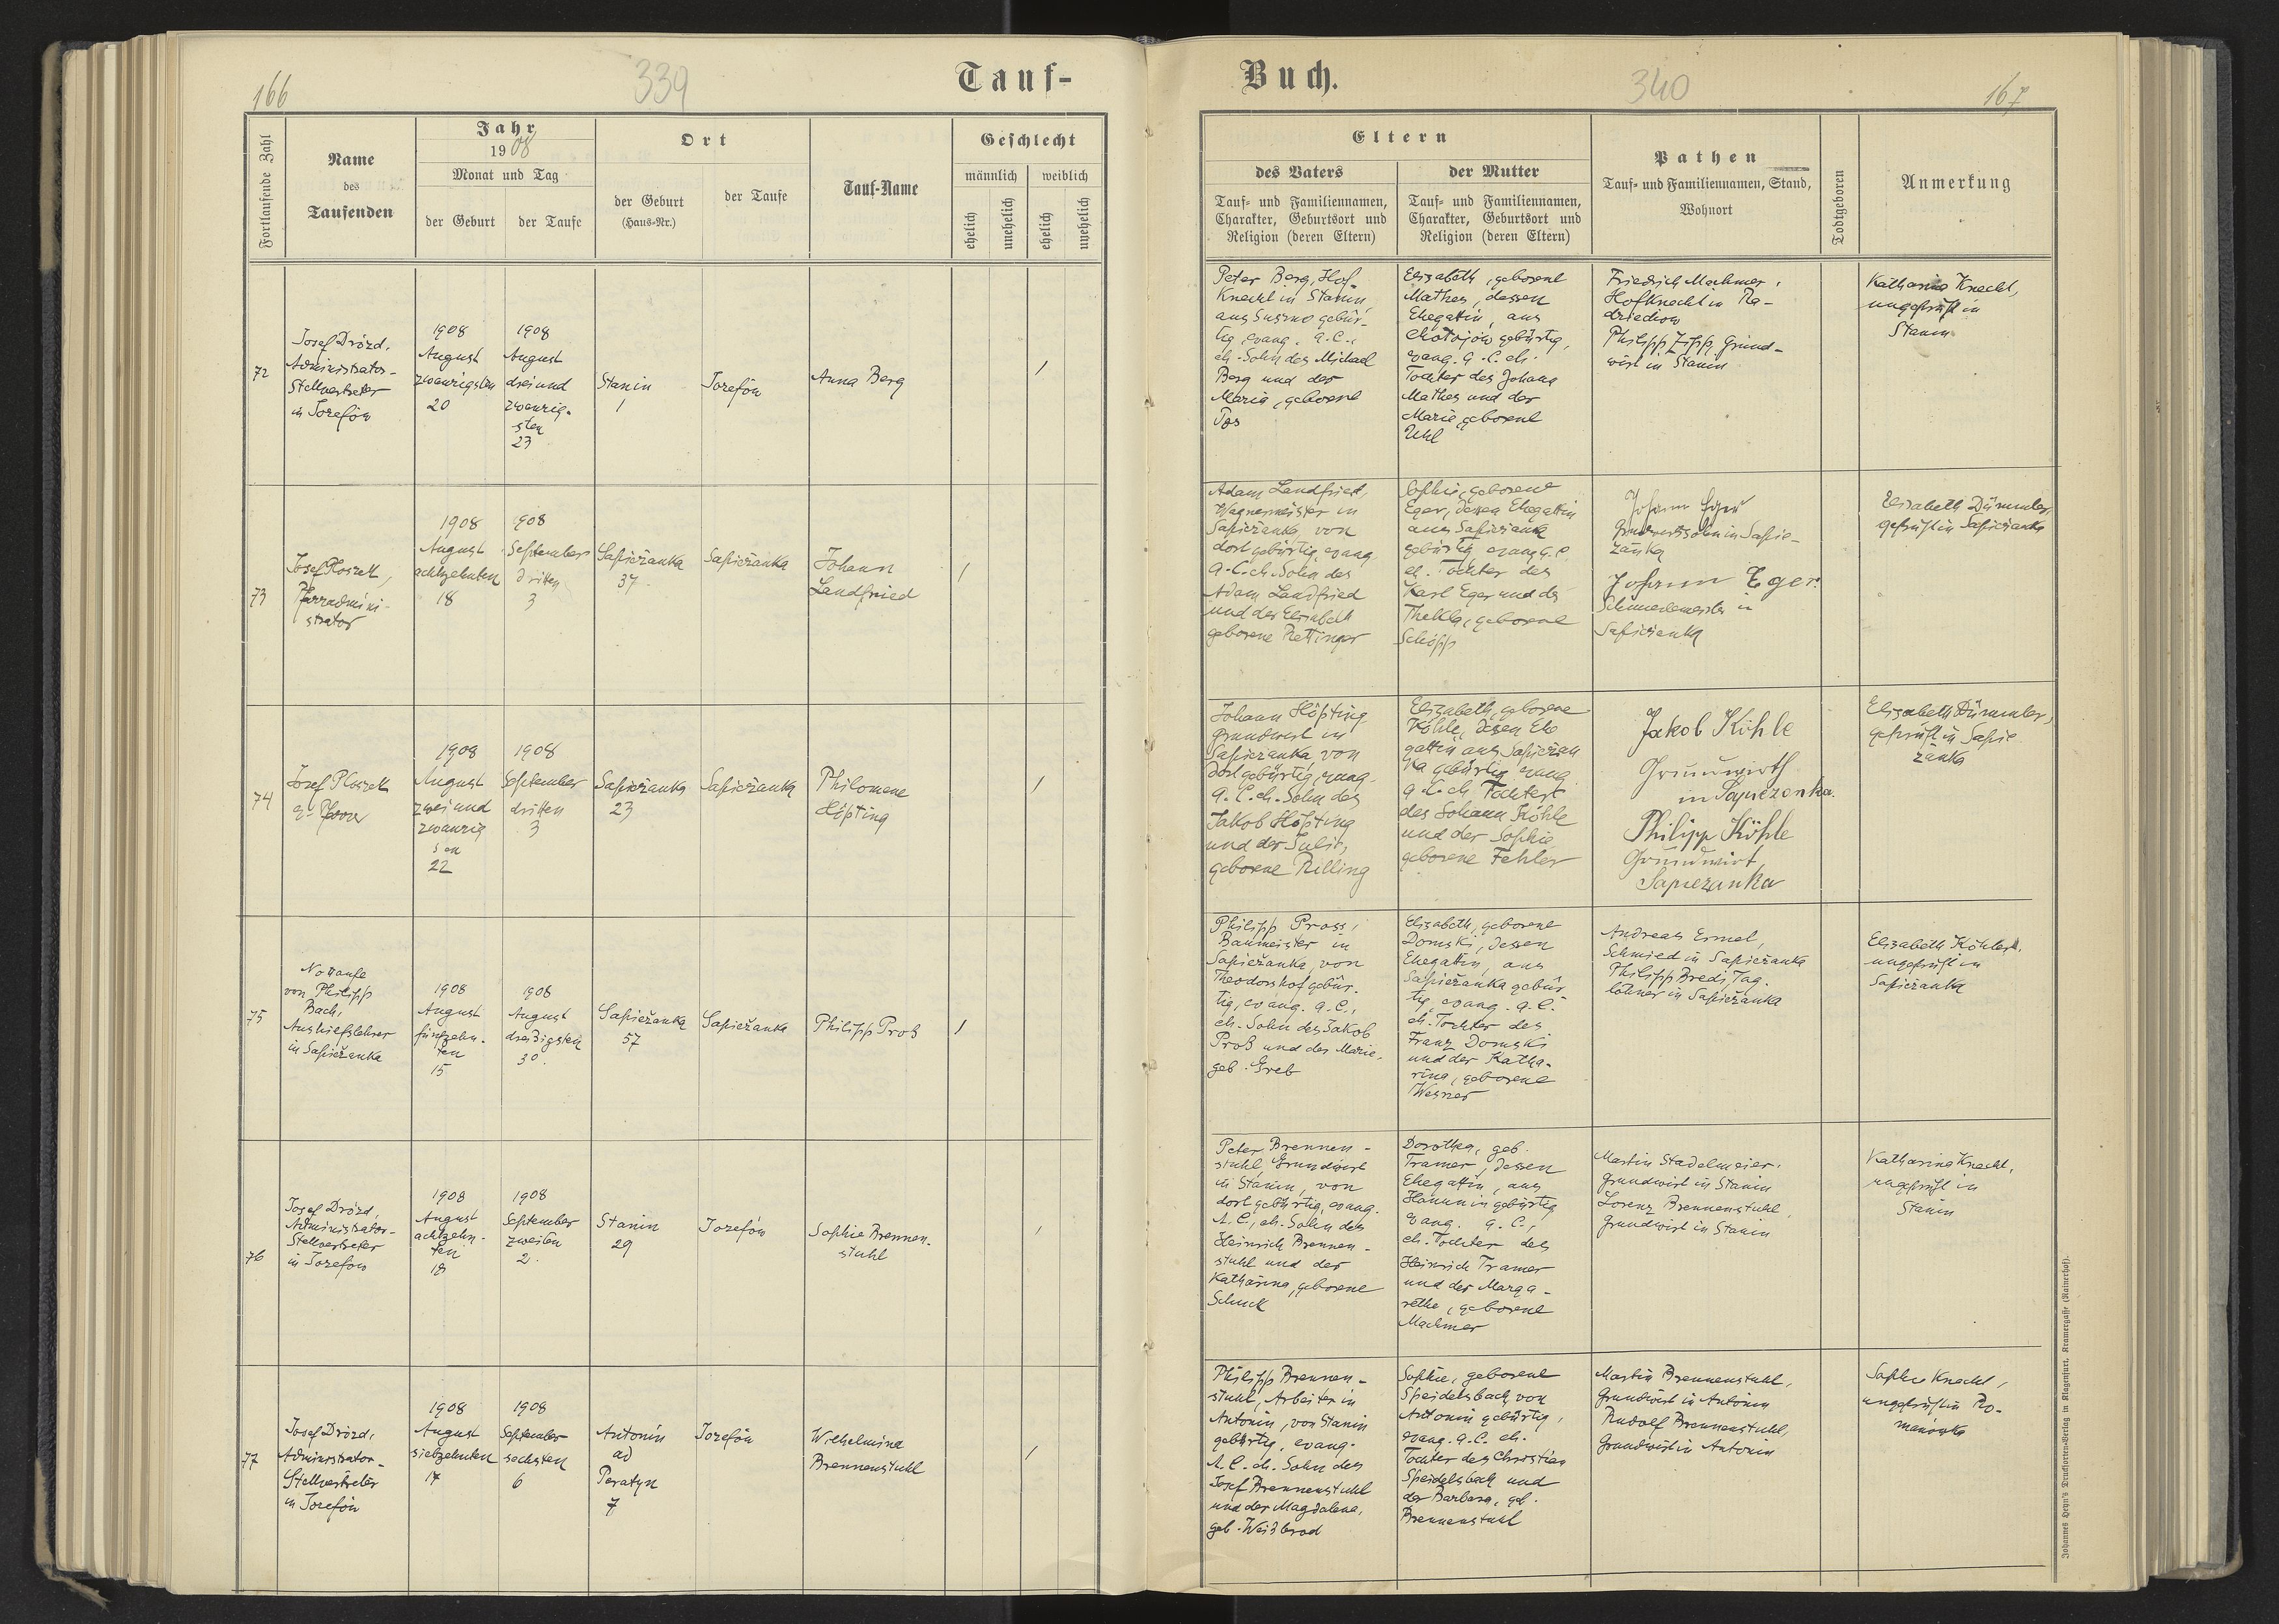 166
339
Tauf-
Fortlaufende Zahl
Name
des
Taufenden
Jahr
1908
Monat und Tag
der Geburt
der Taufe
Ort
der Geburt
(Haus-Nr.)
der Taufe
Tauf-Name
Geschlecht
männlich
weiblich
ehelich
unehelich
ehelich
unehelich
72
Josef Drózd,
Administrator-
Stellvertreter
in Jozefów
1908
August
zwanzigsten
20
1908
August
dreiund
zwanzig-
sten
23
Stanin
1
Jozefów
Anna Berg
1
73
Josef
Pfarradmini-
strator
1908
August
achtzehnten
18
1908
September
dritten
3
Sapieżanka
37
Sapieżanka
Johann
Landfried
1
74
Josef
1908
August
zwei und
zwanzig
sten
22
1908
September
dritten
3
Sapieżanka
23
Sapieżanka
Philomene
Höpting
1
75
Nottaufe
von Philipp
Bach,
Aushilfslehrer
in Sapieżanka
1908
August
fünfzehn-
ten
15
1908
August
dreißigsten
30
Sapieżanka
57
Sapieżanka
Philipp Proß
1
76
Josef Drózd,
Administrator-
Stellvertreter
in Jozefow
1908
August
achtzehn-
ten
18
1908
September
zweiten
2.
Stanin
29
Jozefów
Sophie Brennen-
stuhl
1
77
Josef Drózd,
Administrator-
Stellvertreter
in Jozefów
1908
August
siebzehnten
17
1908
September
sechsten
6
Antonin
ad
Peratyn
7
Jozefów
Wilhelmine
Brennenstuhl
1
Buch.
340
167
Eltern
des Vaters
Tauf- und Familiennamen,
Charakter, Geburtsort und
Religion (deren Eltern)
der Mutter
Tauf- und Familiennamen,
Charakter, Geburtsort und
Religion (deren Eltern)
Pathen
Tauf- und Familiennamen, Stand,
Wohnort
Todtgeboren
Anmerkung
Peter Berg, Hof-
Knecht in Stanin
aus Suszno gebür-
tig, evang. A.C.,
eh. Sohn des Michael
Berg und der
Maria, geborene
Elisabeth, geborene
Mathes, dessen
Ehegattin, aus
Chołojów gebürtig,
evang. A.C. eh.
Tochter des Johann
Mathes und der
Marie geborene
Uhl
Friedrich Machmer,
Hofknecht in Ra-
dziechow
Philipp Zipp, Grund-
wirt in Stanin
Katharina Knecht,
ungeprüft in
Stanin
Adam Landfried,
Wagnermeister in
Sapieżanka, von
dort gebürtig, evang.
A.C. eh. Sohn des
Adam Landfried
und der Elisabeth
geborene Rettinger
Sophie, geborene
Eger, dessen Ehegattin
aus Sapieżanka
gebürtig evang A.C
eh. Tochter des
Karl Eger und der
Thekla, geborene
Schöpp
Johann Eger
Grundwirtssohn in Sapie-
żanka
Johann Eger
Schmiedemeister in
Sapieżanka
Elisabeth Dümmler,
geprüft in Sapieżanka
Johann Höpting
Grundwirt in
Sapieżanka, von
dort gebürtig, evang.
A.C. eh. Sohn des
Jakob Höpting
und der Julie,
geborene Rilling
Elisabeth, geborene
Köhle, dessen Ehe
gattin aus Sapieżan
ka gebürtig evang.
A.C. eh. Tochter
des Johann Köhle
und der Sophie
geborene Fehler
Jakob Köhle
Grundwirth
in Sapiezanka.
Philipp Köhle
Grundwirt,
Sapiezanka
Elisabeth Dümmler,
geprüft in Sapie
żanka
Philipp Pross,
Baumeister in
Sapieżanka, von
Theodorshof gebür-
tig, evang. A.C.,
eh. Sohn des Jakob
Proß und der Marie,
geb. Greb
Elisabeth, geborene
Domski, dessen
Ehegattin, aus
Sapieżanka gebür
tig, evang. A.C.
eh. Tochter des
Franz Domski
und der Katha-
rina, geborene
Wesner
Andreas Ermel,
Schmied in Sapieżanka
Philipp Bredi, Tag-
löhner in Sapieżanka
Elisabeth Köhler,
ungeprüft in
Sapieżanka
Peter Brennen-
stuhl, Grundwirt
in Stanin, von
dort gebürtig, evang.
A.C., eh. Sohn des
Heinrich Brennen-
stuhl und der
Katharina, geborene
Schuck
Dorothea, geb.
Tramer, dessen
Ehegattin, aus
Hanunin gebürtig
evang. A.C.,
eh. Tochter des
Heinrich Tramer
und der Marga-
rethe, geborene
Machmer
Martin Stadelmeier,
Grundwirt in Stanin
Lorenz Brennenstuhl,
Grundwirt in Stanin
Katharina Knecht,
ungeprüft in
Stanin
Philipp Brennen-
stuhl, Arbeiter in
Antonin, von Stanin
gebürtig, evang.
A.C. eh. Sohn des
Josef Brennenstuhl
und der Magdalena,
geb. Weißbrod
Sophie, geborene
Speidelsbach von
Antonin gebürtig,
evang. A.C. eh.
Tochter des Christian
Speidelsbach und
der Barbara, geb.
Brennenstuhl
Martin Brennenstuhl,
Grundwirt in Antonin
Rudolf Brennenstuhl,
Grundwirt in Antonin
Sophie Knecht,
ungeprüft in Ro-
manówka
Johannes Heyn's Drucksorten-Verlag in Klagenfurt, Kramergasse (Rainerhof).